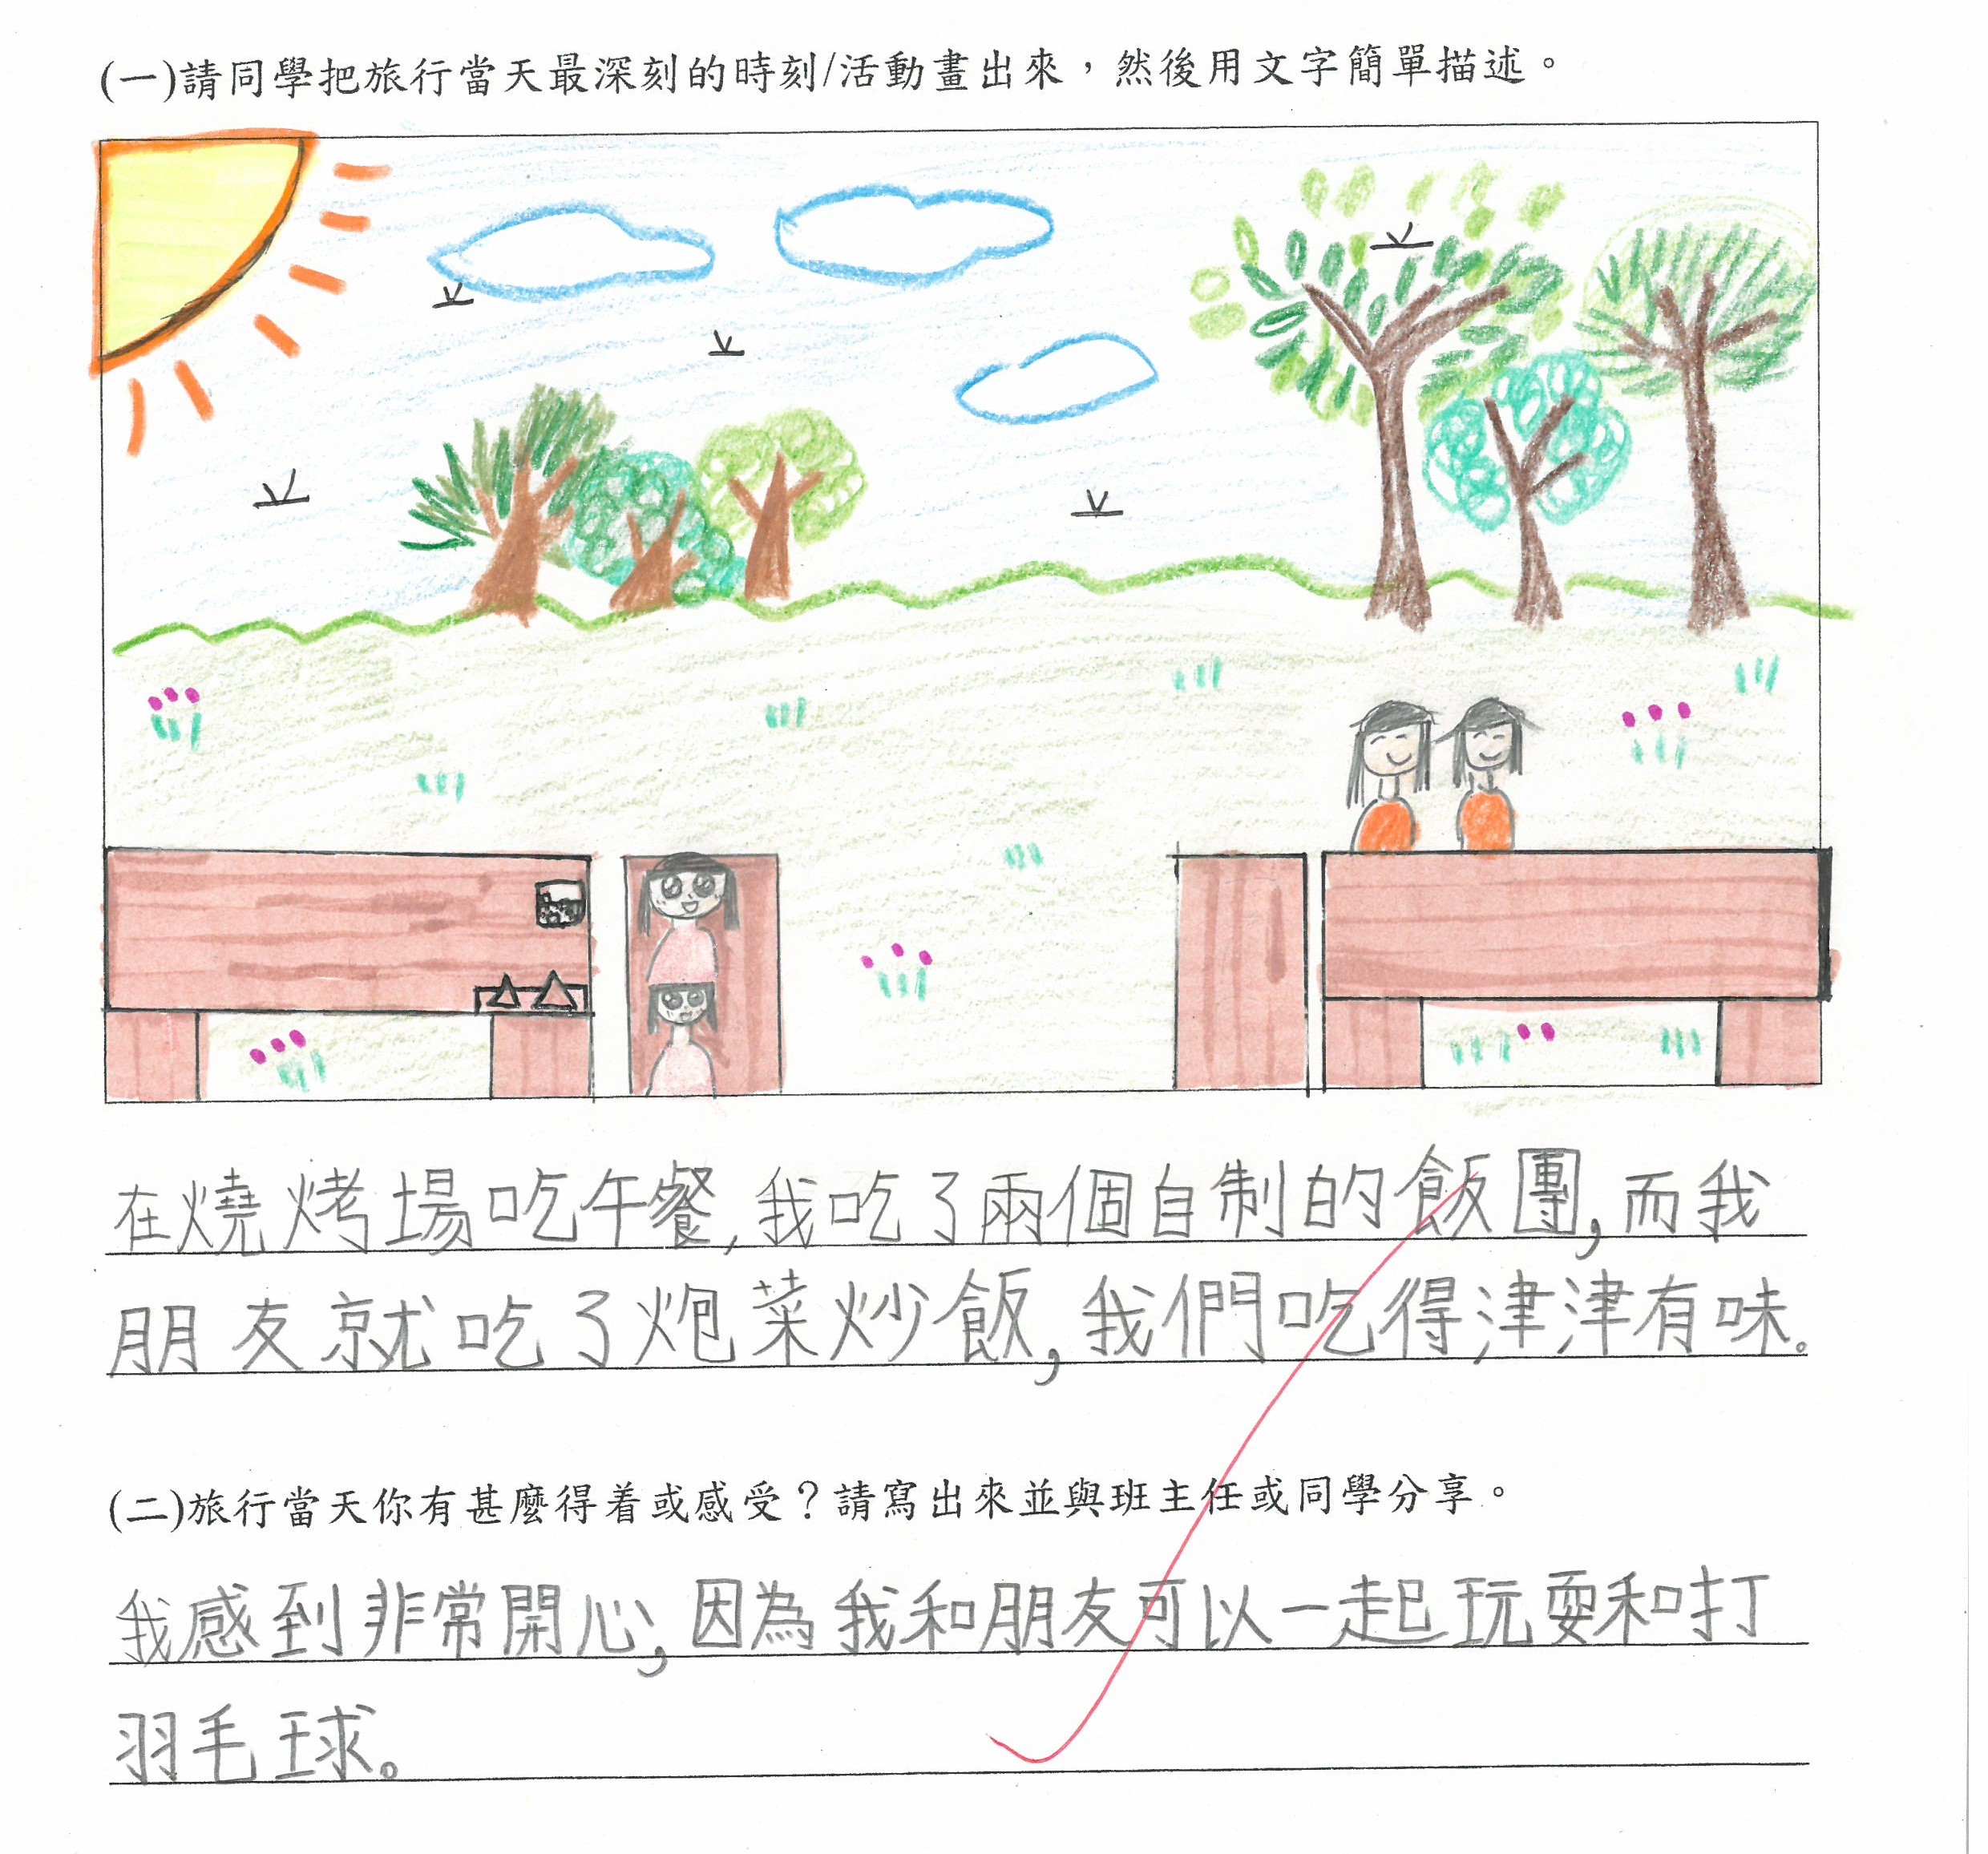 (一)請同學把旅行當天最深刻的時刻/活動畫出來，然後用文字簡單描述。
在燒烤場吃午餐,我吃了兩個自制的飯團,而我
朋友就吃了炮菜炒飯,我們吃得津津有味。
(二)旅行當天你有甚麼得着或感受？請寫出來並與班主任或同學分享。
我感到非常開心,因為我和朋友可以一起玩耍和打
羽毛球。